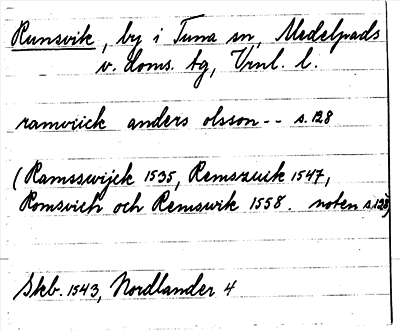 Runsvik, by i Tuna sn, Medelpads
v. doms. tg, Vrnl. l.
ramviick anders olsson -- s. 128
(Ramsswijck 1535, Remszuik 1547,
Romsvich och Remswik 1558. noten s. 128)
Skb. 1543, Nordlander 4